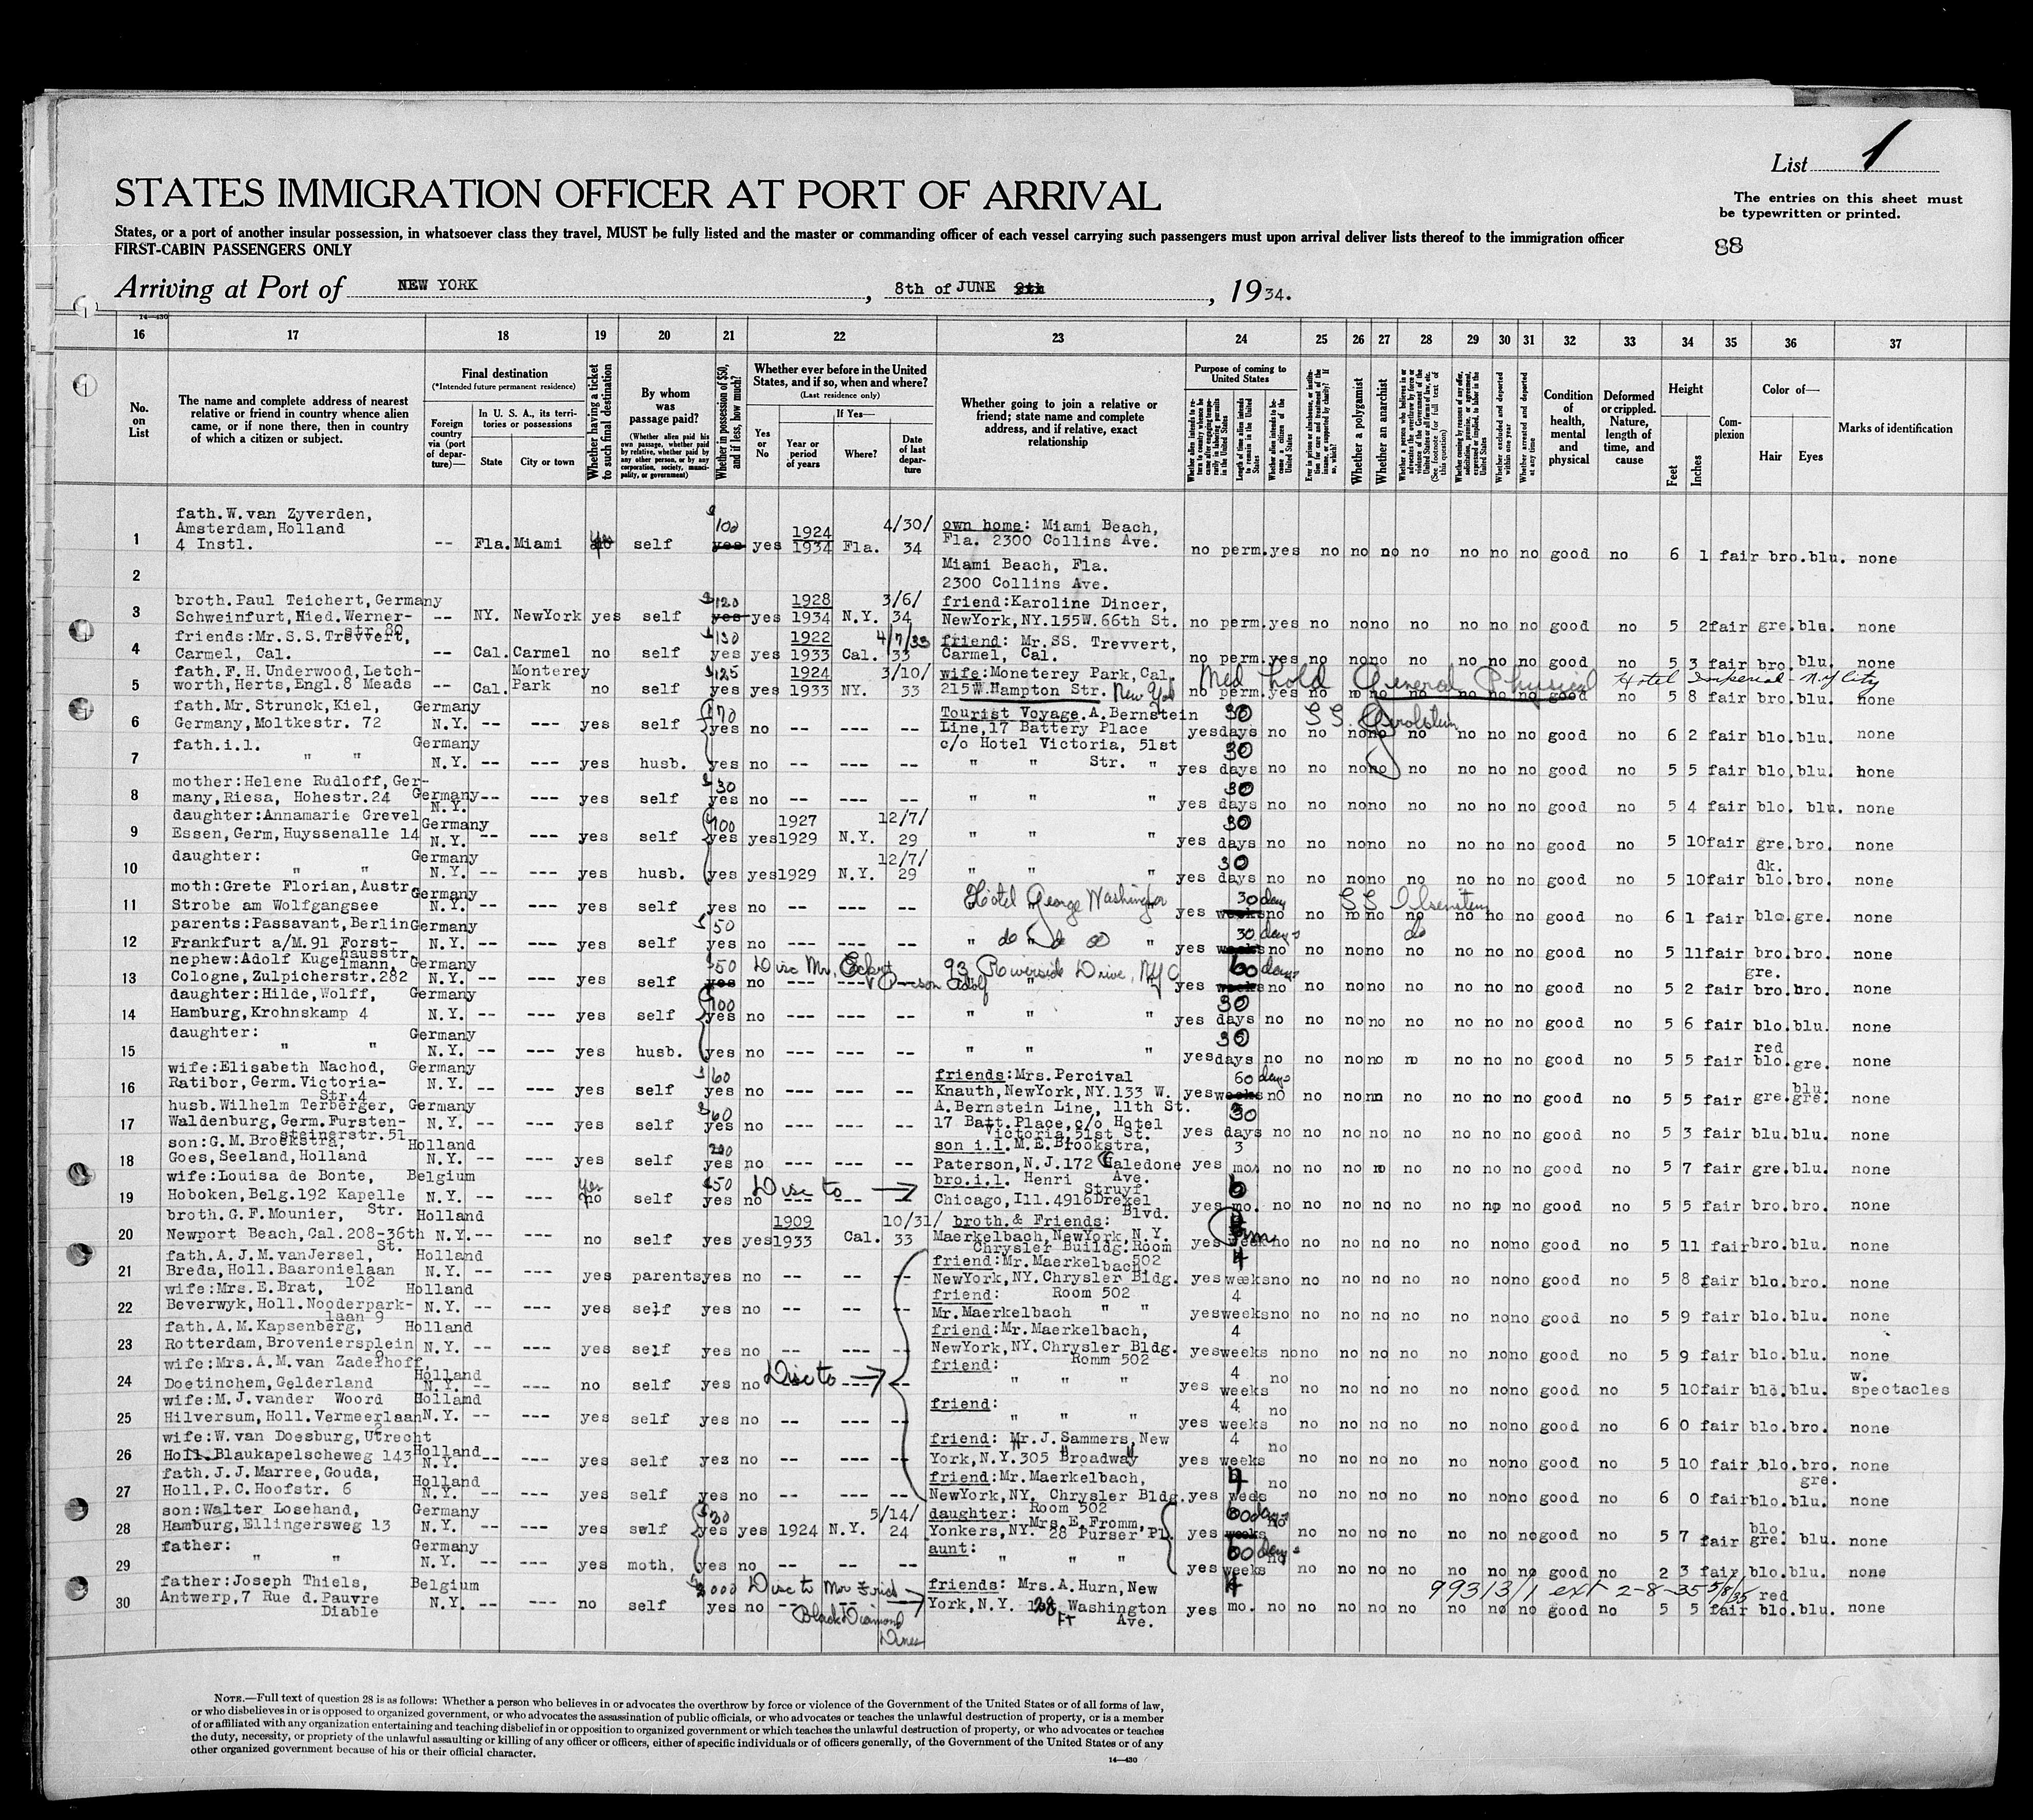 List 1
STATES IMMIGRATION OFFICER AT PORT OF ARRIVAL
The entries on this sheet must
be typewritten or printed.
States, or a port of another insular possession, in whatsoever class they travel, MUST be fully listed and the master or commanding officer of each vessel carrying such passengers must upon arrival deliver lists thereof to the immigration officer
FIRST-CABIN PASSENGERS ONLY
88
Arriving at Port of NEW YORK, 8th of JUNE 9th, 1934.
14-430
16 17 18 19 20 21 22 23 24 25 26 27 28 29 30 31 32 33 34 35 36 37
No. on List
The name and complete address of nearest relative or friend in country whence alien came, or if none there, then in country of which a citizen or subject.
Final destination
(*Intended future permanent residence)
Foreign country via (port of departure)—
In U. S. A., its territories or possessions
State City or town
Whether having a ticket to such final destination
By whom was passage paid?
(Whether alien paid his own passage, whether paid by relative, whether paid by any other person, or by any corporation, society, municipality, or government)
Whether in possession of $50, and if less, how much?
Whether ever before in the United States, and if so, when and where?
(Last residence only)
Yes or No
If Yes—
Year or period of years
Where?
Date of last departure
Whether going to join a relative or friend; state name and complete address, and if relative, exact relationship
Purpose of coming to United States
Length of time alien intends to remain in the United States
Whether alien intends to become a citizen of the United States
Whether a polygamist
Whether an anarchist
Whether excluded and deported within one year
Whether arrested and deported at any time
Condition of health, mental and physical
Deformed or crippled. Nature, length of time, and cause
Height
Feet Inches
Complexion
Color of—
Hair Eyes
Marks of identification
fath. W. van Zyverden,
Amsterdam, Holland
1 4 Instl. -- Fla. Miami yes no self $100 yes yes 1924 1934 Fla. 4/30/34 own home: Miami Beach, Fla. 2300 Collins Ave. no perm. yes no no no no no no no good no 6 1 fair bro. blu. none
2 Miami Beach, Fla.
2300 Collins Ave.
broth. Paul Teichert, Germany
3 Schweinfurt, Nied. Werner-str. 80 -- NY. NewYork yes self $120 yes yes 1928 1934 N.Y. 3/6/34 friend: Karoline Dincer, NewYork, NY. 155W. 66th St. no perm. yes no no no no no no no good no 5 2 fair gre. blu. none
friends: Mr. S.S. Trevvert,
4 Carmel, Cal. -- Cal. Carmel no self $130 yes yes 1922 1933 Cal. 4/7/33 33 friend: Mr. SS. Trevvert, Carmel, Cal. no perm. yes no no no no no no no good no 5 3 fair bro. blu. none
fath. F. H. Underwood, Letch-
5 worth, Herts, Engl. 8 Meads -- Cal. Monterey Park no self $125 yes yes 1924 1933 NY. 3/10/33 wife: Moneterey Park, Cal. 215 W. Hampton Str. New York no perm. yes no no no no no no no good no 5 8 fair bro. blu. none
Med hold General Physical Hotel Imperial - N.Y City
fath. Mr. Strunck, Kiel,
6 Germany, Moltkestr. 72 Germany N.Y. -- --- yes self $170 yes no -- --- -- Tourist Voyage. A. Bernstein Line, 17 Battery Place yes 30 days no no no no no no no no good no 6 2 fair blo. blu. none
SS. Gerolstein
fath. i. l.
7 " " Germany N.Y. -- --- yes husb. yes no -- --- -- c/o Hotel Victoria, 51st Str. yes 30 days no no no no no no no no good no 5 5 fair blo. blu. none
mother: Helene Rudloff, Ger-
8 many, Riesa, Hohestr. 24 Germany N.Y. -- --- yes self $30 yes no -- --- -- " " " yes 30 days no no no no no no no no good no 5 4 fair blo. blu. none
daughter: Annamarie Grevel
9 Essen, Germ, Huyssenalle 14 Germany N.Y. -- --- yes self $100 yes yes 1927 1929 N.Y. 12/7/29 " " " yes 30 days no no no no no no no no good no 5 10 fair gre. bro. none
daughter:
10 " " Germany N.Y. -- --- yes husb. yes yes 1929 N.Y. 12/7/29 " " " yes 30 days no no no no no no no no good no 5 10 fair dk. blo. bro. none
moth: Grete Florian, Austr.
11 Strobe am Wolfgangsee Germany N.Y. -- --- yes self yes no -- --- -- Hotel George Washington yes 30 days weeks no no no no no no no no good no 6 1 fair blo. gre. none
SS Ilsenstein
parents: Passavant, Berlin
12 Frankfurt a/M. 91 Forst-hausstr. Germany N.Y. -- --- yes self $50 yes no --- --- -- " do " do " yes 30 days weeks no no no no no do no no no good no 5 11 fair bro. bro. none
nephew: Adolf Kugelmann,
13 Cologne, Zulpicherstr. 282 Germany N.Y. -- --- yes self $50 yes no --- --- Disc Mr. Eckert 93 Riverside Drive, NYC yes 60 days weeks no no no no no no no no good no 5 2 fair gre. bro. bro. none
daughter: Hilde, Wolff,
14 Hamburg, Krohnskamp 4 Germany N.Y. -- --- yes self $100 yes no --- --- -- " " " yes 30 days no no no no no no no no good no 5 6 fair blo. blu. none
daughter:
15 " " Germany N.Y. -- --- yes husb. yes no --- --- -- " " " yes 30 days no no no no no no no no good no 5 5 fair red blo. gre. none
wife: Elisabeth Nachod,
16 Ratibor, Germ. Victoria-Str. 4 Germany N.Y. -- --- yes self $60 yes no --- --- -- friends: Mrs. Percival Knauth, NewYork, NY. 133 W. 11th St. yes 60 days weeks no no no no no no no no good no 5 5 fair gre. blu. gre. none
husb. Wilhelm Terberger,
17 Waldenburg, Germ. Fursten-steinerstr. 51 Germany N.Y. -- --- yes self $60 yes no --- --- -- A. Bernstein Line, 17 Batt. Place, c/o Hotel Victoria, 51st St. yes 30 days no no no no no no no no good no 5 3 fair blu. blu. none
son: G. M. Broelstra,
18 Goes, Seeland, Holland Holland N.Y. -- --- yes self 200 yes no --- --- -- son i. l. M. E. Brookstra, Paterson, N.J. 172 Caledone Ave. yes 3 mo. no no no no no no no no good no 5 7 fair gre. blu. none
wife: Louisa de Bonte,
19 Hoboken, Belg. 192 Kapelle Str. Belgium N.Y. -- --- yes no self $50 yes no Disc to bro. i. l. Henri Struyf Chicago, Ill. 4916 Drexel Blvd. yes 6 mo. no no no no no no no no good no 5 5 fair bro. bro. none
broth. G. F. Mounier,
20 Newport Beach, Cal. 208-36th St. Holland N.Y. -- --- no self yes yes 1909 1933 Cal. 10/31/33 broth. & Friends: Maerkelbach, NewYork, N.Y. Chrysler Buildg. Room 502 yes no no no no no no no no good no 5 11 fair bro. blu. none
fath. A. J. M. van Jersel,
21 Breda, Holl. Baaronielaan 102 Holland N.Y. -- --- yes parents yes no -- -- -- friend: Mr. Maerkelbach, NewYork, NY. Chrysler Bldg. Room 502 yes 4 weeks no no no no no no no no good no 5 8 fair blo. bro. none
wife: Mrs. E. Brat,
22 Beverwyk, Holl. Nooderpark-laan 9 Holland N.Y. -- --- yes self yes no -- --- -- friend: Mr. Maerkelbach " " yes 4 weeks no no no no no no no no good no 5 9 fair blo. blu. none
fath. A. M. Kapsenberg,
23 Rotterdam, Broveniersplein Holland N.Y. -- --- yes self yes no -- --- -- friend: Mr. Maerkelbach, NewYork, NY. Chrysler Bldg. Romm 502 yes 4 weeks no no no no no no no no good no 5 9 fair blo. blu. none
wife: Mrs. A. M. van Zadelhoff,
24 Doetinchem, Gelderland Holland N.Y. -- --- no self yes no Disc to friend: " " " yes 4 weeks no no no no no no no no good no 5 10 fair blo. blu. w. spectacles
wife: M. J. vander Woord
25 Hilversum, Holl. Vermeerlaan Holland N.Y. -- --- yes self yes no -- --- -- friend: " " " yes 4 weeks no no no no no no no no good no 6 0 fair blo. bro. none
wife: W. van Doesburg, Utrecht
26 Holl. Blaukapelscheweg 143 Holland N.Y. -- --- yes self yes no -- --- -- friend: Mr. J. Sammers, New York, N.Y. 305 Broadway yes 4 weeks no no no no no no no no good no 5 10 fair blo. bro. none
fath. J. J. Marree, Gouda,
27 Holl. P. C. Hoofstr. 6 Holland N.Y. -- --- yes self yes no -- --- -- friend: Mr. Maerkelbach, NewYork, NY. Chrysler Bldg. Room 502 yes 4 weeks no no no no no no no no good no 6 0 fair blo. gre. blu. none
son: Walter Losehand,
28 Hamburg, Ellingersweg 13 Germany N.Y. -- --- yes self yes yes 1924 N.Y. 5/14/24 daughter: Mrs. E. Fromm, Yonkers, NY. 28 Purser Pl. yes 60 days weeks no no no no no no no no good no 5 7 fair blo. gre. blu. none
father:
29 " " Germany N.Y. -- --- yes moth. yes no -- -- -- aunt: " " " yes 60 days weeks no no no no no no no no good no 2 3 fair blo. blu. none
father: Joseph Thiels,
30 Antwerp, 7 Rue d. Pauvre Diable Belgium N.Y. -- --- no self yes no Disc to Black Diamond Lines friends: Mrs. A. Hurn, New York, N.Y. Washington Ave. yes 4 mo. no no no no no no no no good no 5 5 fair red blo. blu. none
99313/1 ext 2-8-35
NOTE.—Full text of question 28 is as follows: Whether a person who believes in or advocates the overthrow by force or violence of the Government of the United States or of all forms of law,
or who disbelieves in or is opposed to organized government, or who advocates the assassination of public officials, or who advocates or teaches the unlawful destruction of property, or is a member
of or affiliated with any organization entertaining and teaching disbelief in or opposition to organized government or which teaches the unlawful destruction of property, or who advocates or teaches
the duty, necessity, or propriety of the unlawful assaulting or killing of any officer or officers, either of specific individuals or of officers generally, of the Government of the United States or of any
other organized government because of his or their official character.
14-430